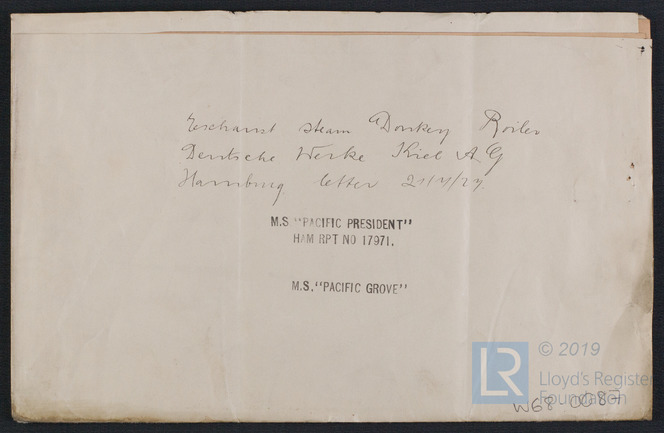 Exchaust steam Donkey Boiler
Deutsche Werke Kiel A G
Hamburg letter
M.S "PACIFIC PRESIDENT"
HAM RPT NO 17971.
M.S. "PACIFIC GROVE"
LR
© 2019
Lloyd's Register
Foundation
W68